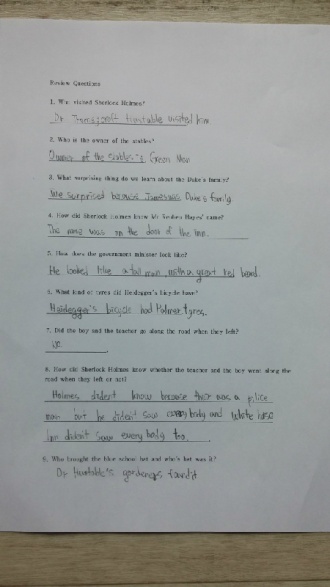 Review Questions
1. Who visited Sherlock Holmes?
Dr. Huxtable visited him
2. Who is the owner of the stables?
Owner of the stables's Green Man
3. What surprising thing do we learn about the Duke's family?
We surprised because James was Duke's family.
4. How did Sherlock Holmes know Mr Reuben Hayes' name?
The name was on the door of the inn.
5. How does the government minister look like?
He looked like a tall man, with a great red beard.
6. What kind of tyres did Heidegger's bicycle have?
Heidegger's bicycle had Palmer tyres.
7. Did the boy and the teacher go along the road when they left?
No.
8. How did Sherlock Holmes know whether the teacher and the boy went along the
road when they left or not?
Holmes didn't know because there was a police
man but he didn't saw everybody and
Inn didn't saw everybody too.
9. Who brought the blue school hat and who's hat was it?
Dr Huxtable's found it